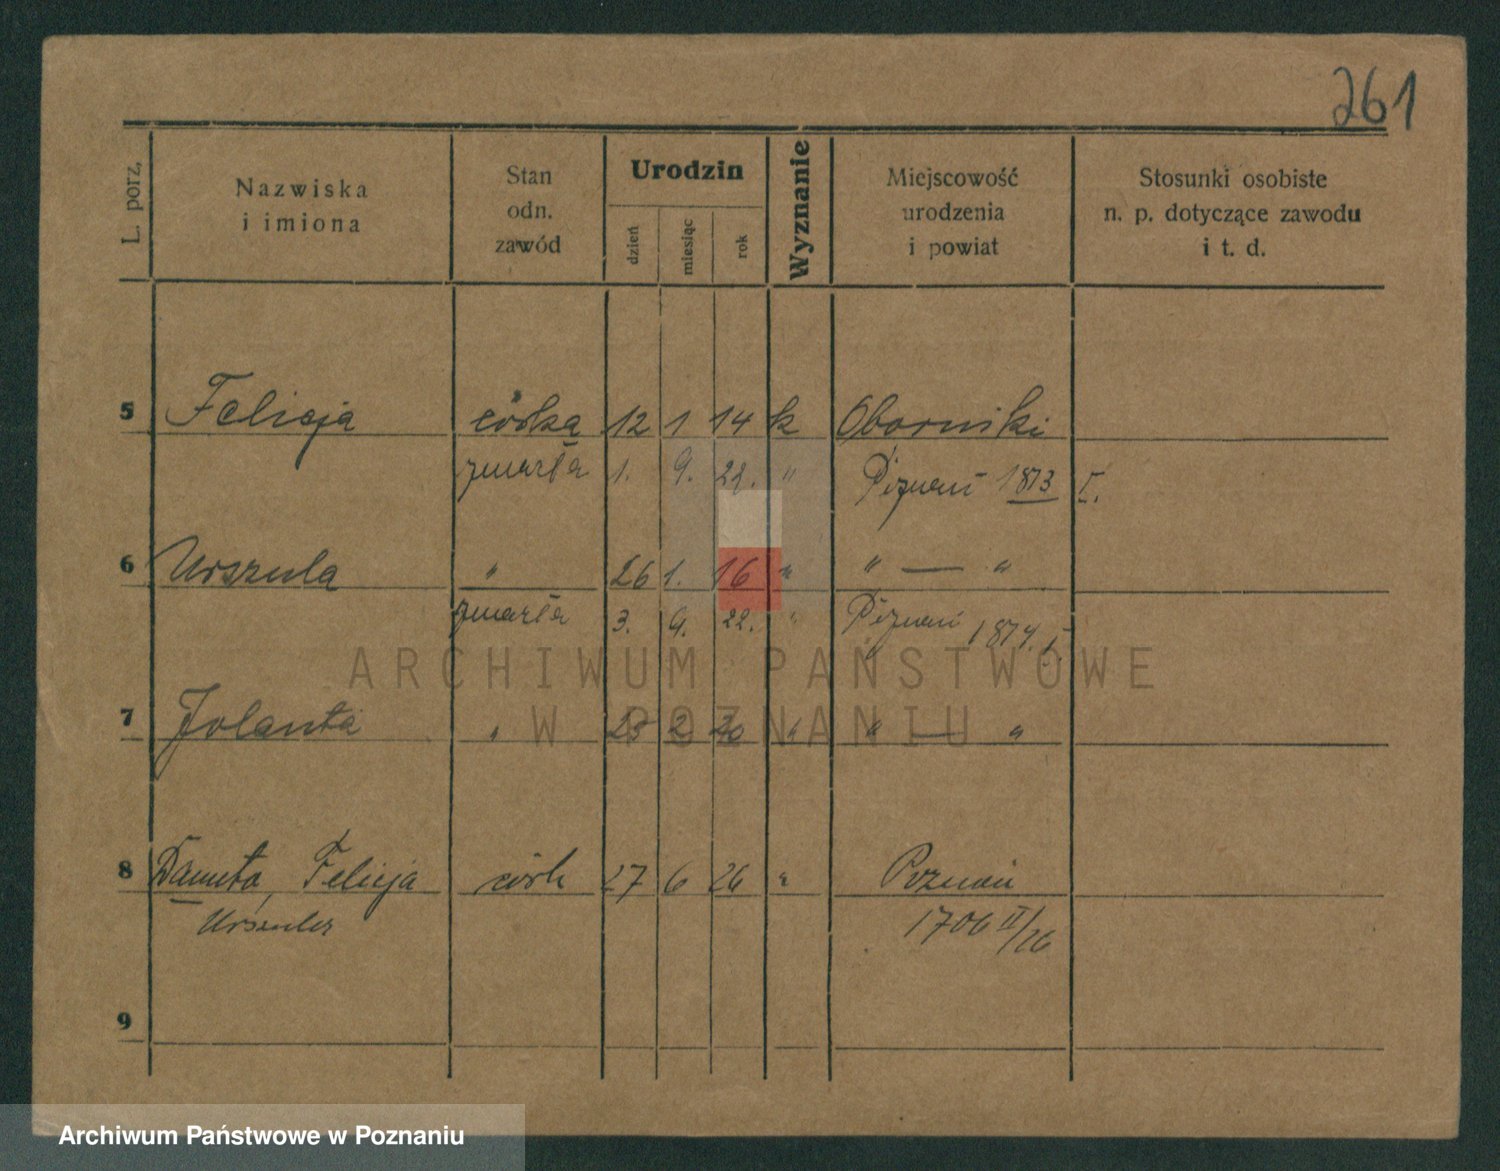 261
L. porz.
Nazwiska
i imiona
Stan
odn.
zawód
Urodzin
dzień
miesiąc
rok
Wyznanie
Miejscowość
urodzenia
i powiat
Stosunki osobiste
n. p. dotyczące zawodu
i t. d.
5 Felicja córka 12 1 14 k Oborniki
zmarła 1. 9. 22. " Poznań 1873 I.
6 Urszula " 26 1. 16 " " — "
zmarła 3. 9. 22. " Poznań 1874. I
7 Jolanta " 2 20 " " — "
8 Danuta, Felicja córk 27 6 26 " Poznań
Urszula 1706 II/26
9
ARCHIWUM PAŃSTWOWE
W POZNANIU
Archiwum Państwowe w Poznaniu